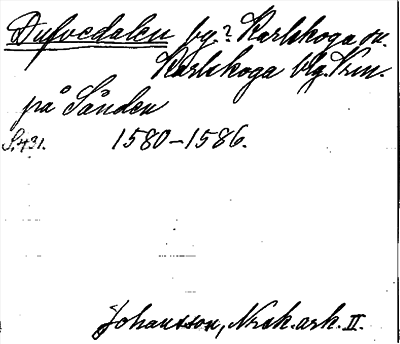 Dufvedalen by.? Karlskoga sn.
Karlskoga blg. Krin.
på Sånden
S. 431. 1580–1586.
Johansson, Nrck. ark. II.